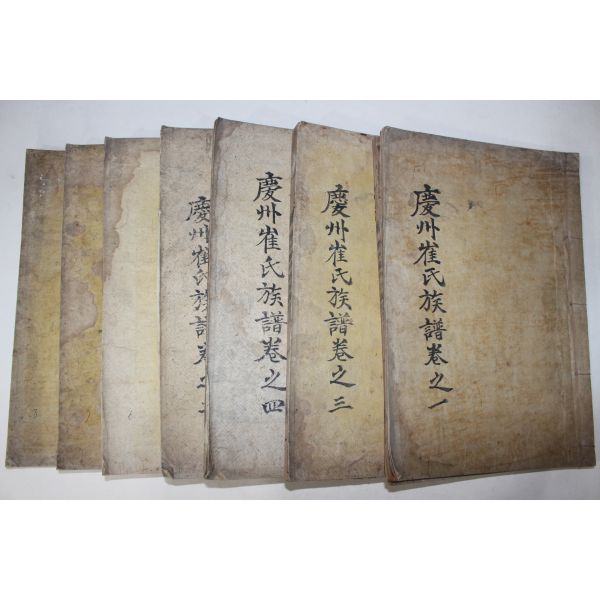 慶州崔氏族譜卷之一
慶州崔氏族譜卷之三
慶州崔氏族譜卷之四
慶州崔氏族譜卷之二